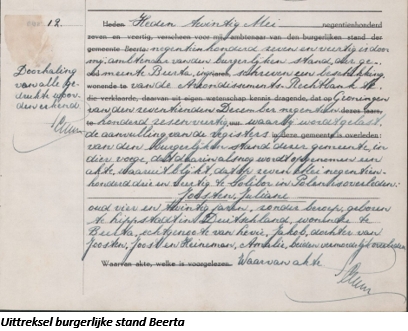 No. 12.
Heden Heden twintig Mei negentienhonderd
zeven en veertig, verscheen voor mij, ambtenaar van den burgerlijken stand der
gemeente Beerta negentienhonderd zeven en veertig is door
mij, ambtenaar van den burgerlijken stand, der ge-
meente Beerta, ingeschreven een beschikking
wonende te van de Arrondissements-Rechtbank te
die verklaarde, daarvan uit eigen wetenschap kennis dragende, dat op Groningen
van den zeventienden December negentien
honderd zesenveertig, waarbij wordt gelast
de aanvulling van de registers in dezer gemeente is overleden:
van den burgerlijken stand dezer gemeente, in
dier voege, dat daarin alsnog wordt opgenomen een
akte, waaruit blijkt, dat op zeven Mei negentien-
honderd drie en veertig te Sobibor in Polen is overleden:
Joosten, Juliane
oud vier en twintig jaren, zonder beroep, geboren
te Lippstadt in Duitschland, wonende te
Beerta, echtgenoote van Levie, Jakob, dochter van
Joosten, Joost en Heineman, Amalie, beiden vermoedelijk overleden.
Waarvan akte, welke is voorgelezen. Waarvan akte
Doorhaling
van alle ge-
drukte woor-
den erkend.
Uittreksel burgerlijke stand Beerta